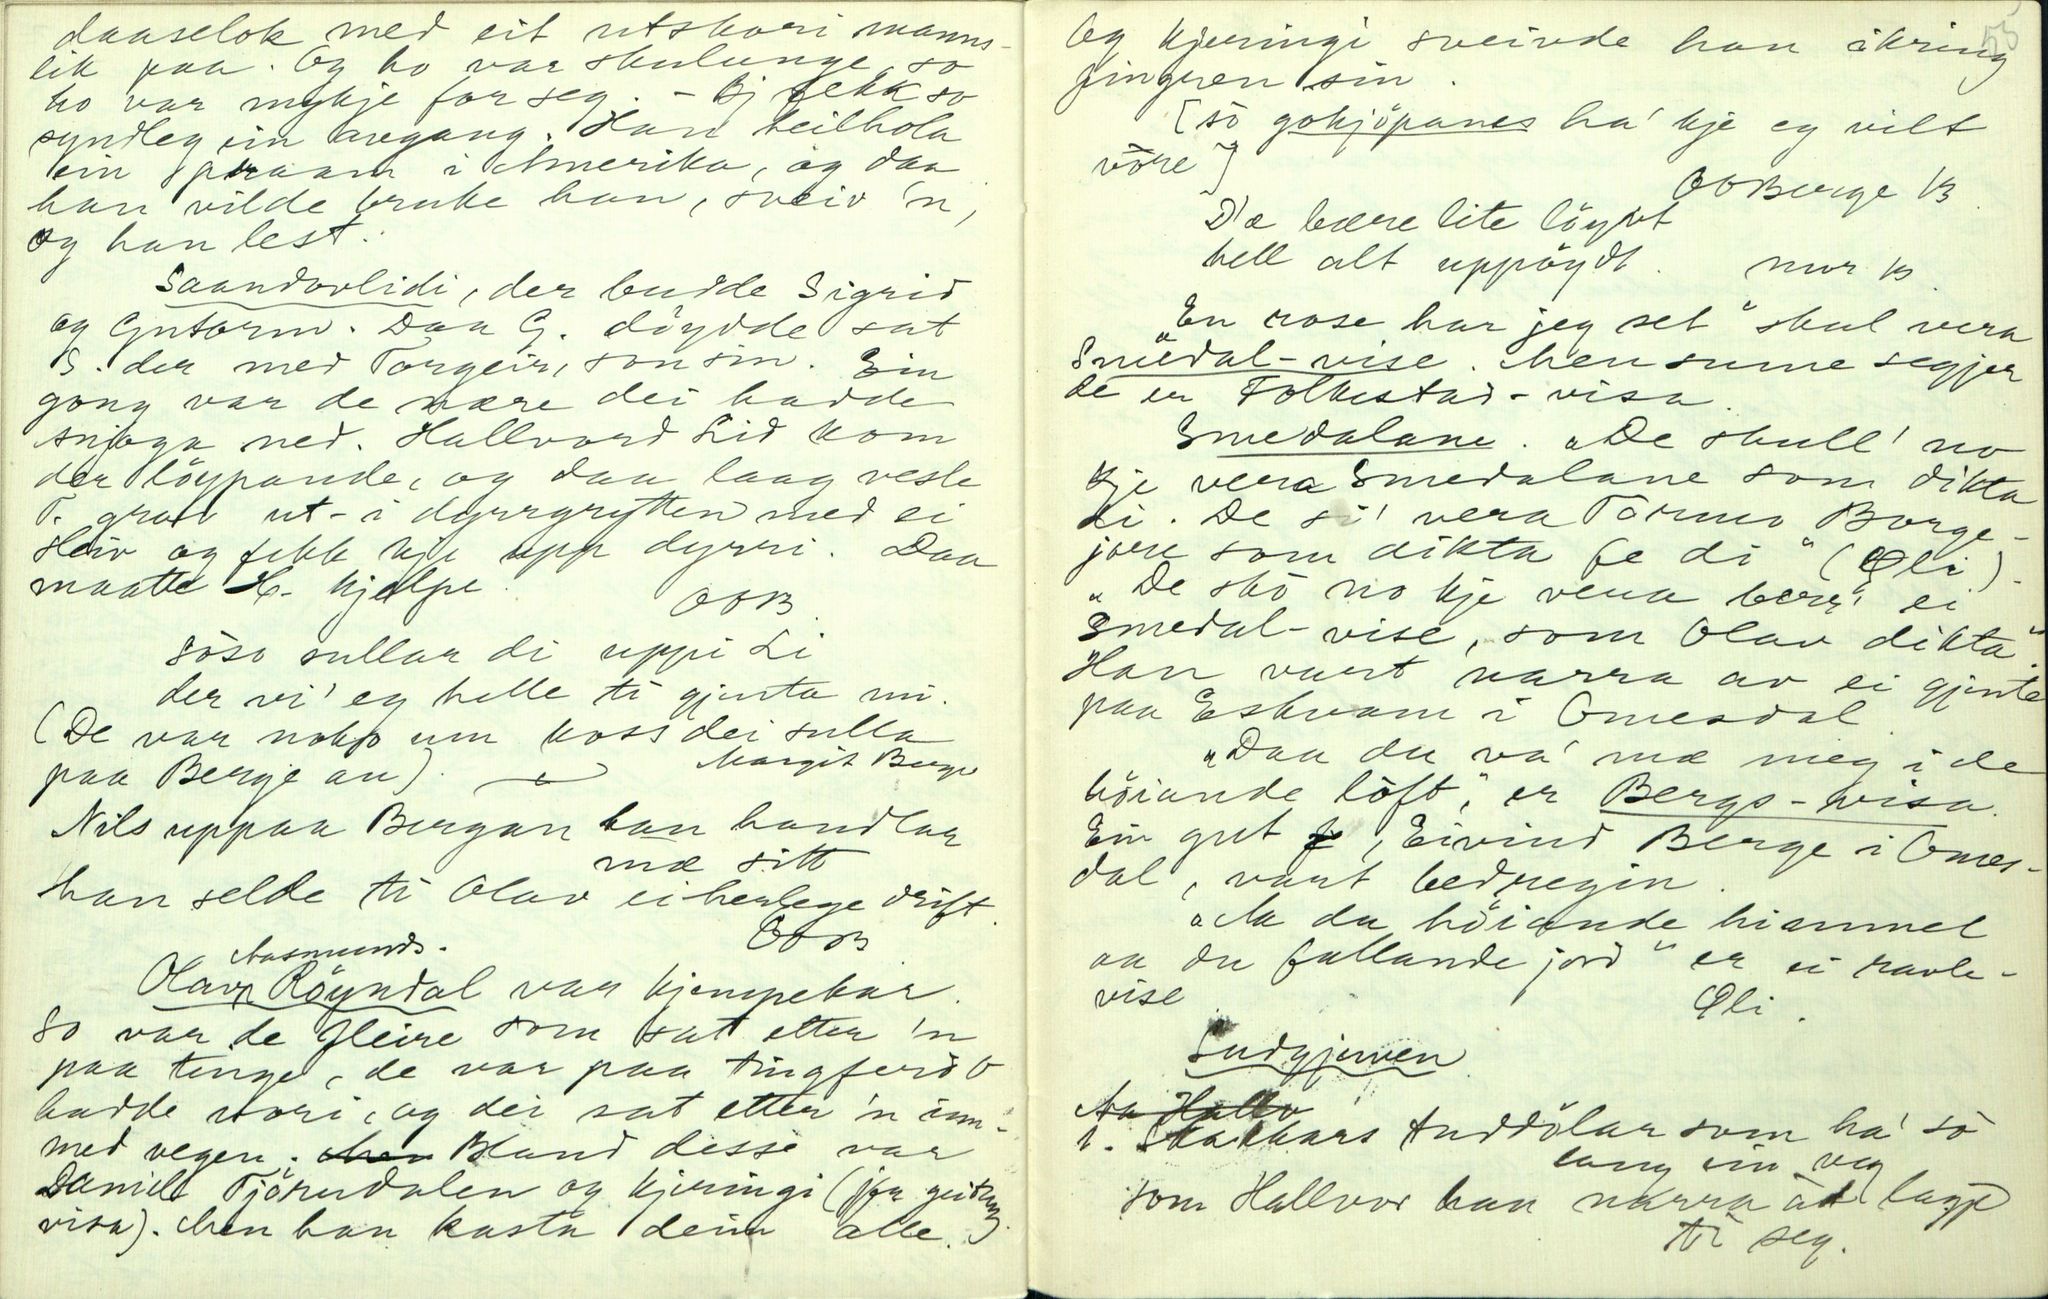 daaselok med eit utskori manns-
lik paa. Og ho var skulunge, so
ho var mykje for seg. - Bj fekk so
syndleg ein avgang. Han heilhola
ein spraam i Amerika, og daa
han vilde bruke han, sveiv 'n,
og han lest.
Saandovlidi, der budde Sigrid
og Gutorm. Daa G. döydde sat
S. der med Torgeir, son sin. Ein
gong var de nære dei hadde
snjoga ned. Hallvord Lid kom
der löypande, og daa laag vesle
T. grov ut-i dyrrgrytten med ei
sleiv og fekk kje upp dyrri. Daa
maatte H. hjelpe.
OOB.
Söso sullar di uppi Li
der vi' eg helle ti gjenta mi.
(De var nokso um hoss dei sulla
paa Berge au).
Margit Berge
Nils uppaa Bergan han handlar
mæ sitt
han selde ti Olav ei herlege drift.
OOB
Aasmunds.
Olav Röyndal var kjempekar.
So var de fleire som sat etter 'n
paa tinge, de var paa tingferd O
hadde vori, og dei sat etter 'n inn-
med vegen. Men Bland desse var
Daniel Tjörndalen og kjeringi (jfr geit
visa). Men han kasta deim alle.
55
Og kjeringi sveivde han ikring
fingren sin.
[sö gokjöpanes ha' kje eg vilt
vöre]
OOBerge B.
D'æ bære lite löyvt
hell alt uppöydt. mor B.
"En rose har jeg set" skul vera
Smedal-vise. Men sume segjer
de er Folkestad-visa.
Smedalane. "De skull' no
kje vera Smedalane som dikta
di. De si' vera Tormo Borge-
jore som dikta fe di" (Oli).
"De skö no kje vera berr' ei
Smedal-vise, som Olav dikta".
Han vart narra av ei gjente
paa Eskvam i Omesdal
"Daa du va' mæ meg i de
höiande löft," er Bergs-visa.
Ein gut , Eivind Berge i Omes-
dal, vart bedregin.
"Aa du höiande himmel
aa du fallande jord" er ei ravle-
vise.
Oli.
Sudgjerven
Aa Hallv
1. Stakkars Auddölar som ha' sö
lang ein veg
som Hallvor han narra åt lagje
ti seg.